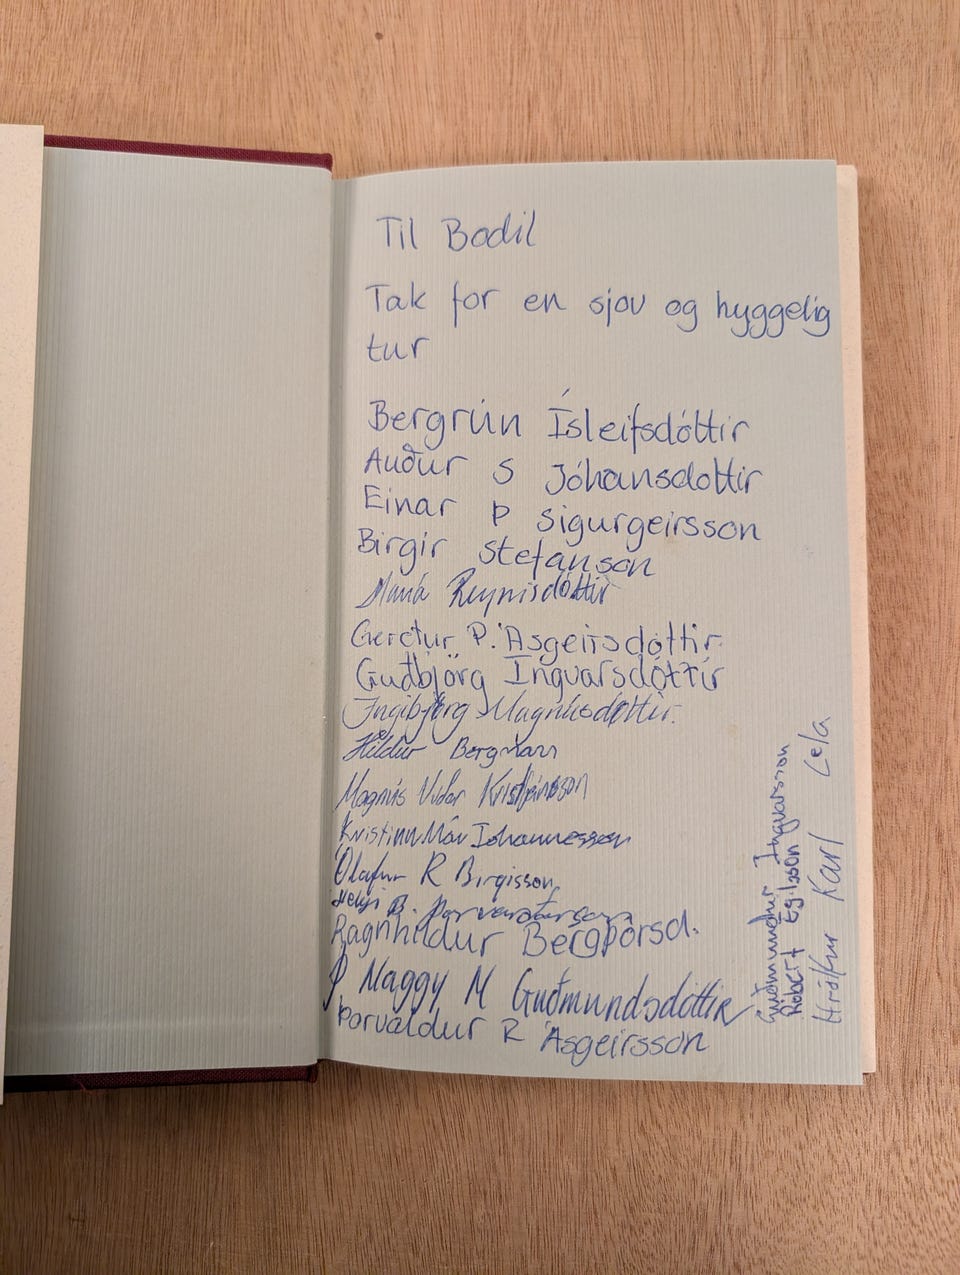 Til Bodil
Tak for en sjov og hyggelig
tur
Bergrún Ísleifsdóttir
Auður S Jóhansdottir
Einar Þ Sigurgeirsson
Birgir Stefanson
Reynisdóttir
P. Ásgeirsdóttir
Guðbjörg Ingvarsdóttir
Ingibjörg Magnúsdóttir.
Hildur Bergmann
Magnús Viðar Kristjánsson
Kristinn Már Jóhannesson
Ólafur R Birgisson
Helgi B.
Ragnhildur Bergþórsd.
Þ Maggy M Guðmundsdóttir
Þorvaldur R Ásgeirsson
Guðmundur Ingvarsson
Róbert Egilsson
Karl